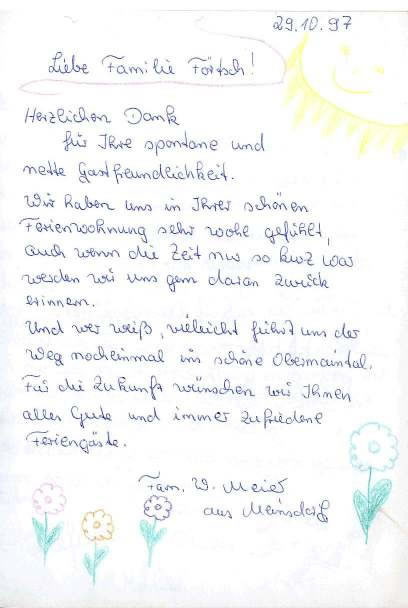 29.10.97
Liebe Familie Förtsch!
Herzlichen Dank
für Ihre spontane und
nette Gastfreundlichkeit.
Wir haben uns in Ihrer schönen
Ferienwohnung sehr wohl gefühlt,
auch wenn die Zeit nur so kurz war
werden wir uns gern daran zurück
erinnern.
Und wer weiß, vieleicht führt uns der
Weg nocheinmal ins schöne Obermaintal.
Für die Zukunft wünschen wir Ihnen
alles Gute und immer zufriedene
Feriengäste.
Fam. W. Meier
aus Meinsdorf